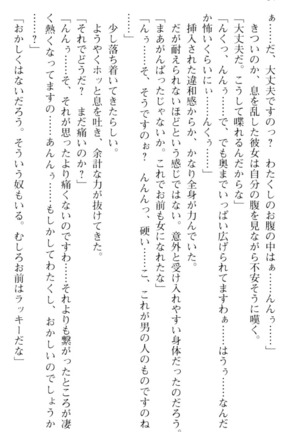 ぁ……だ、大丈夫ですの? わたくしのお腹の中はぁ……んんぅ……」
きついのか、息を乱した彼女は自分の腹を見ながら不安そうに囁く。
「大丈夫だ。こうして喋れるんだからな」
「んくっ、んんぅ……で、でも奥までいっぱい広げられてますわぁ……はうぅ……なんだ
か怖いくらいにぃ……んくぅ……」
挿入された違和感からか、かなり全身が力んでいた。
だが耐えられないほどという感じではない。意外と受け入れやすい身体だったのだろう。
「まあがんばったじゃないか。これでお前も女になれたな」
「んぅ……そ、そうですのね? んんんっ、硬い……こ、これが男の人のものですのね
……」
少し落ち着いてきたらしい。
ようやくホッと息を吐き、余計な力が抜けてきた。
「それでどうだ? まだ痛いのか?」
「んんぅ……そ、それが思ったより痛くないのですわ……それよりも繋がったところが凄
く熱くなってますの……あんんぅ……もしかしてわたくし、おかしいのでしょうか
……?」
「おかしくはないだろう。そういう奴もいる。むしろお前はラッキーだな」